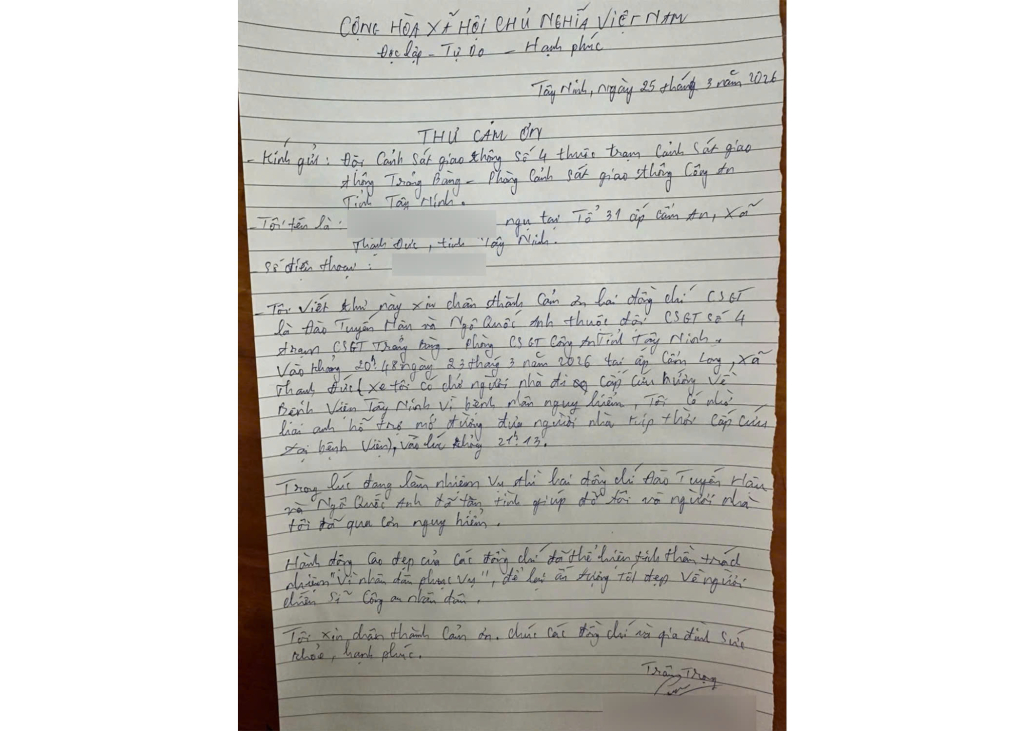 CỘNG HÒA XÃ HỘI CHỦ NGHĨA VIỆT NAM
Độc lập - Tự Do - Hạnh phúc
Tây Ninh, ngày 25 tháng 3 năm 2026
THƯ CẢM ƠN
- Kính gửi: Đội Cảnh sát giao thông số 4 thuộc trạm Cảnh sát giao
thông Trảng Bàng - Phòng Cảnh sát giao thông Công An
Tỉnh Tây Ninh.
- Tôi tên là: ngụ tại Tổ 31 ấp cẩm An, xã
Thạnh Đức, tỉnh Tây Ninh.
Số điện thoại:
- Tôi viết thư này xin chân thành cảm ơn hai đồng chí CSGT
là Đào Tuyến Hân và Ngô Quốc Anh thuộc đội CSGT số 4
trạm CSGT Trảng Bàng - Phòng CSGT Công An Tỉnh Tây Ninh.
Vào khoảng 20h48 ngày 23 tháng 3 năm 2026 tại ấp Cẩm Long, xã
Thạnh Đức (xe tôi có chở người nhà đi cấp cứu hướng về
Bệnh Viện Tây Ninh vì bệnh nhân nguy hiểm, Tôi có nhờ
hai anh hỗ trợ mở đường đưa người nhà kịp thời cấp cứu
tại bệnh viện), vào lúc khoảng 21h13.
Trong lúc đang làm nhiệm vụ thì hai đồng chí Đào Tuyến Hân
và Ngô Quốc Anh đã tận tình giúp đỡ tôi và người nhà
tôi đã qua cơn nguy hiểm.
Hành động cao đẹp của các đồng chí đã thể hiện tinh thần trách
nhiệm "Vì nhân dân phục vụ", để lại ấn tượng tốt đẹp về người
chiến sĩ Công an nhân dân.
Tôi xin chân thành cảm ơn. chúc các đồng chí và gia đình sức
khỏe, hạnh phúc.
Trân Trọng